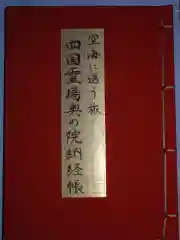 空海に逢う旅
四国霊場奥の院納経帳